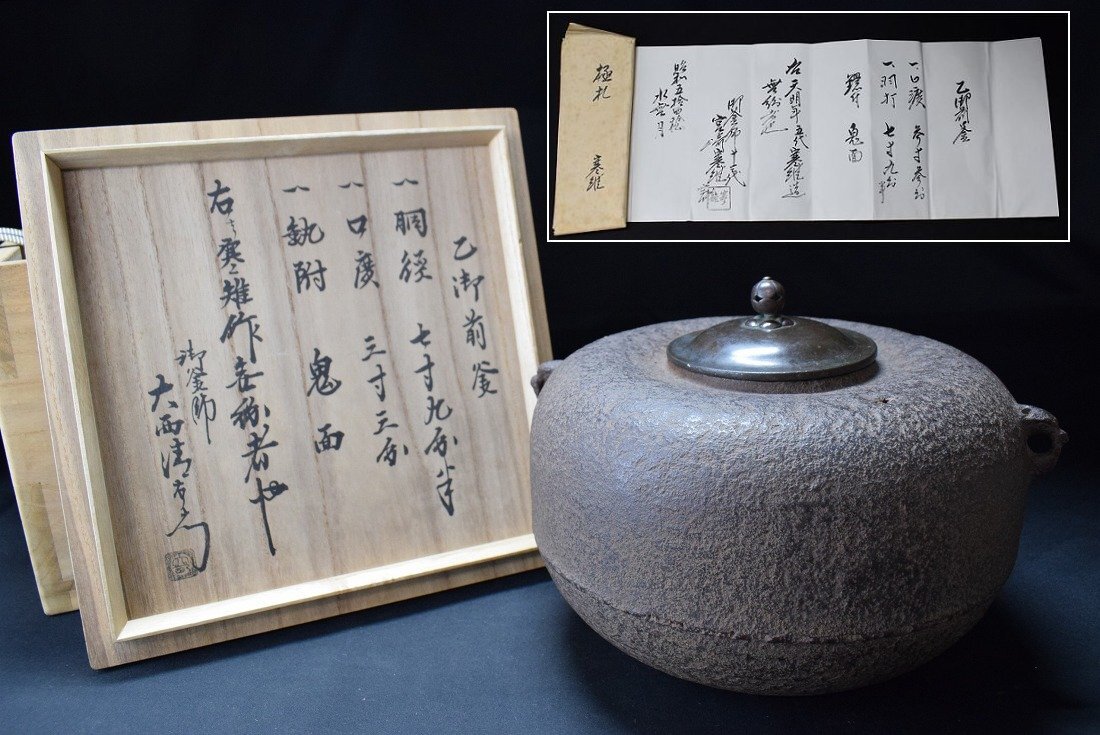 乙御前釜
一胴径 七寸九分半
一口廣 三寸三分
一釻附 鬼面
右寒雉作無紛者也
御釜師
大西清右衛門
極札 寒雉
乙御前釜
一、口渡 参寸参分
一、胴打 七寸九分半
鐶付 鬼面
右天明年五代寒雉造
無紛者也
御釜師 十二代
宮崎寒雉
昭和五拾四年
水無月